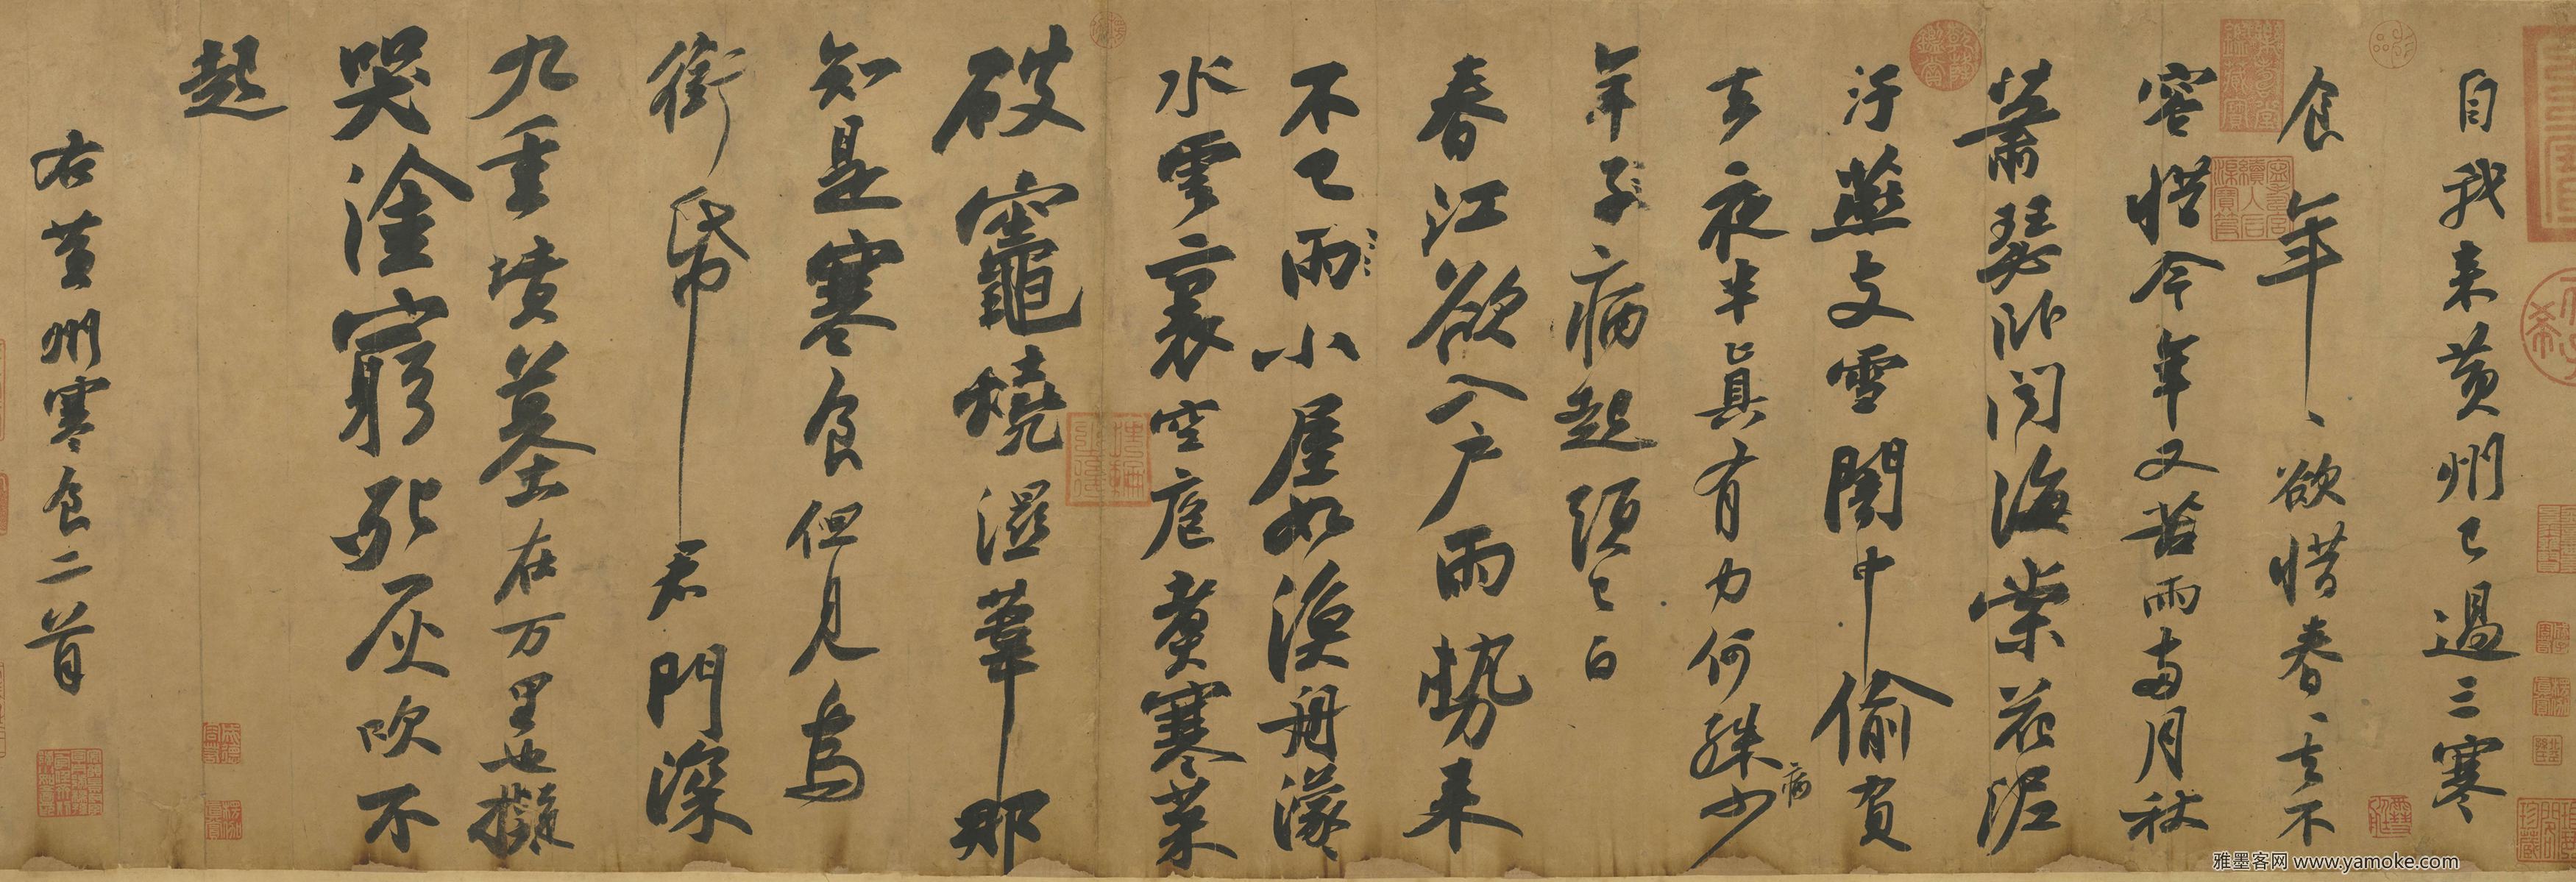 自我来黄州已過三寒
食年〻欲惜春〻去不
容惜今年又苦雨兩月秋
蕭瑟卧聞海棠花泥
汙燕支雪闇中偷負
去夜半真有力何殊少
病
年子病起頭已白
春江欲入户雨勢来
不已雨小屋如漁舟濛
水雲裏空庖煮寒菜
破竈燒濕葦那
知是寒食但見烏
銜帋君門深
九重墳墓在万里也擬
哭塗窮死灰吹不
起
右黄州寒食二首
雅墨客网 www.yamoke.com